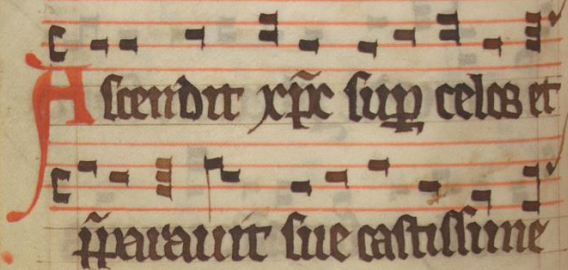 Ascendit xp̄c sup̱ celos et
p̄parauit sue castissime